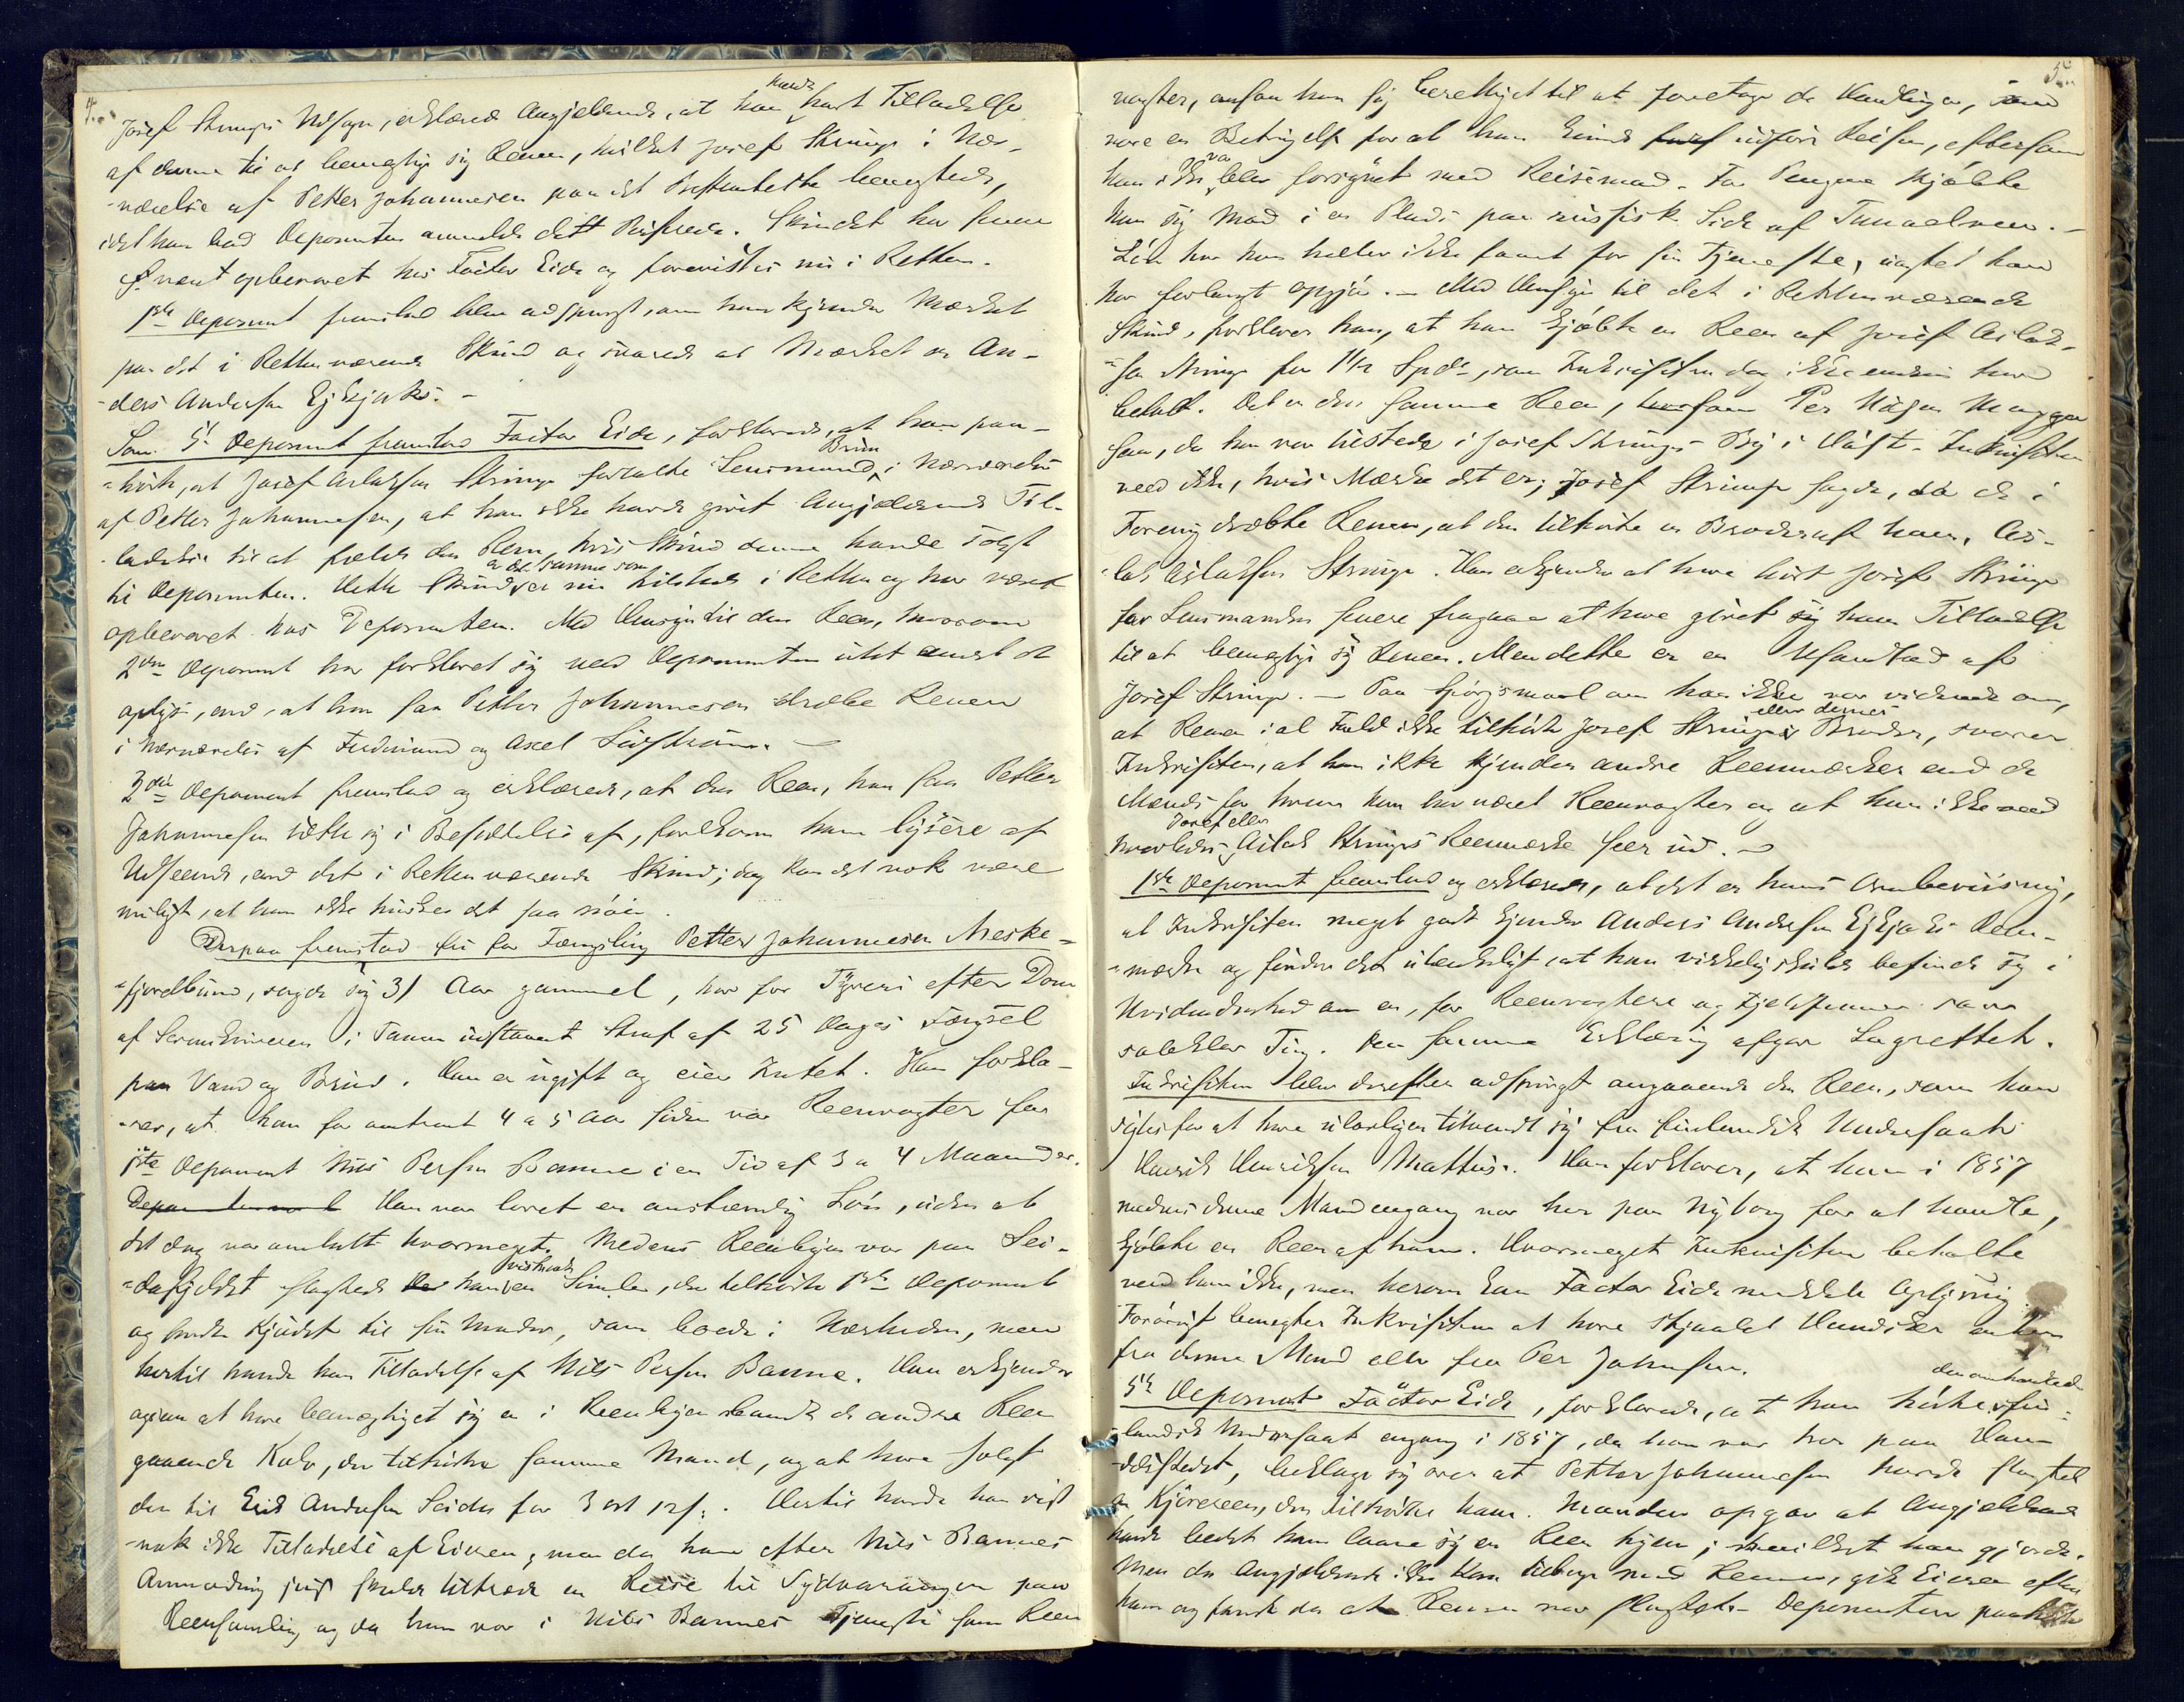 4.
Josef Strimps Udsagn, erklærede Angjeldende, at han havde havt Tilladelse
af denne til at bemægtige sig Renen, hvilket Josef Strimp i Nær-
-værelse af Petter Johannesen paa det Bestemteste benegtede,
idet han bad Deponenten anmelde dette Passerede. Skindet har siden
været opbevaret hos Factor Eide og forevistes nu i Retten.
1ste Deponent fremstod blev adspurgt, om han kjender Mærket
paa det i Retten værende Skind og svarede at Mærket er An-
-ders Andersen Ejkjaks. -
Som 5te Deponent fremstod Factor Eide, forklarede, at han paa-
-hørte, at Josef Aslaksen Strimp fortalte Lensmand Brun i Nærværelse
af Petter Johannesen, at han ikke havde givet Angjeldende Til-
-ladelse til at fælde den Reen, hvis Skind denne havde solgt
til Deponenten. Dette Skind er det samme som er nu tilstede i Retten og har været
opbevaret hos Deponenten. Med Hensyn til den Reen, hvorom
2den Deponent har forklaret sig ved Deponenten intet andet at
oplyse, end, at han saa Petter Johannesen dræbe Renen
i Nærværelse af Ferdinand og Axel Sidstrøm. -
2den Deponent fremstod og erklærede, at den Reen, han saa Petter
Johannesen sætte sig i Besiddelse af, forekom ham lysere af
Udseende, end det i Retten værende Skind; dog kan det nok være
muligt, at han ikke husker det saa nøie.
Derpaa fremstod fri for Fængsling Petter Johannesen Meske-
-fjordbund, sagde sig 31 Aar gammel, har for Tyveri efter Dom
af Sorenskriveren i Tanen udstaaet Straf af 25 Dages Fængsel
paa Vand og Brød. Han er ugift og eier Intet. Han forkla-
-rer, at han for omtrent 4 a 5 Aar siden var Reenvogter for
1ste Deponent Nils Persen Banne i en Tid af 3 a 4 Maaneder.
Han var lovet en anstændig Løn, uden at
det dog var omtalt hvormeget. Medens Reenbyen var paa Sei-
-dafjeldet slagtede han vistnok en Simle, der tilhørte 1ste Deponent
og bragte Kjødet til sin Moder, som boede i Nærheden, men
hertil havde han Tilladelse af Nils Persen Banne. Han erkjender
ogsaa at have bemægtiget sig en i Reenbyen blandt de andre Reen
gaaende Kalv, der tilhørte samme Mand, og at have solgt
den til Erik Andersen Seida for 3 ort 12 s. Hertil havde han vist
-nok ikke Tilladelse af Eieren, men da han efter Nils Bannes
Anmodning just skulde tiltræde en Reise til Sydvaranger paa
Reensamling og da han var i Nils Bannes Tjeneste som Reen
5.
vogter, ansaa han sig berettiget til at foretage de Handlinger, som
vare en Betingelse for at han kunde udføre Reisen, eftersom
han ikke var blev forsynet med Reisemad. For Pengene kjøbte
han sig Mad i en Plads paa russisk Side af Tanaelven. -
Løn har han heller ikke faaet for sin Tjeneste, uagtet han
har forlangt Opgjør. - Med Hensyn til det i Retten værende
Skind, forklarer han, at han kjøbte en Reen af Josef Aslak-
-sen Strimp for 1 1/2 Spd, som Inkvisiten dog ikke endnu har
betalt. Det er den samme Reen, som Per Nilsen Magga
saa, da han var tilstede i Josef Strimps By i Høst. Inkvisiten
veed ikke, hvis Mærke det er; Josef Strimp sagde, da de i
Forening dræbte Renen, at den tilhørte en Broder af ham, As-
-lak Aslaksen Strimp. Han erkjender at have hørt Josef Strimp
for Lensmanden senere fragaae at have givet ham Tilladelse
til at bemægtige sig Renen. Men dette er en Usandhed af
Josef Strimp. - Paa Spørgsmaal om han ikke var vidende om,
at Renen i al Fald ikke tilhørte Josef Strimp eller dennes Broder, svarer
Inkvisiten, at han ikke kjender andre Reenmærker end de
Mænds for hvem han har været Reenvogter og at han ikke veed
hvorledes Josef eller Aslak Strimps Reenmærke seer ud. -
1ste Deponent fremstod og erklærede, at det er hans Overbeviisning,
at Inkvisiten meget godt kjender Anders Andersen Ejkjaks Reen-
-mærke og finder det utænkeligt at han virkelig skulde befinde sig i
Uvidenhed om en, for Reenvogtere og Fjeldfinner saa
saaklar Ting. Den samme Erklæring afgav Lagrettet.
Inkvisiten blev derefter adspurgt angaaende den Reen, som han
sigtes for at have ulovligen tilvendt sig fra finlandsk Undersaat
Henrik Henriksen Mattus. Han forklarer, at han i 1857
medens denne Mand engang var her paa Nyborg for at handle,
kjøbte en Reen af ham. Hvormeget Inkvisiten betalte
veed han ikke, men herom kan Factor Eide meddele Oplysning.
Forøvrigt benegter Inkvisiten at have stjaalet Hundsker enten
fra denne Mand eller fra Per Johnsen.
5te Deponent Factor Eide, forklarede, at han hørte den omhandlede fin-
-landsk Undersaat engang i 1857, da han var her paa Han-
-delsstedet, beklage sig over at Petter Johannesen havde slagtet
en Kjøreren, der tilhørte ham. Manden opgav at Angjeldende
havde bedet ham laane sig en Reen hjem; hvilket han gjorde.
Men da Angjeldende ikke kom tilbage med Renen, gik Eieren efter
ham og fandt da at Renen var slagtet. Deponenten paahørte